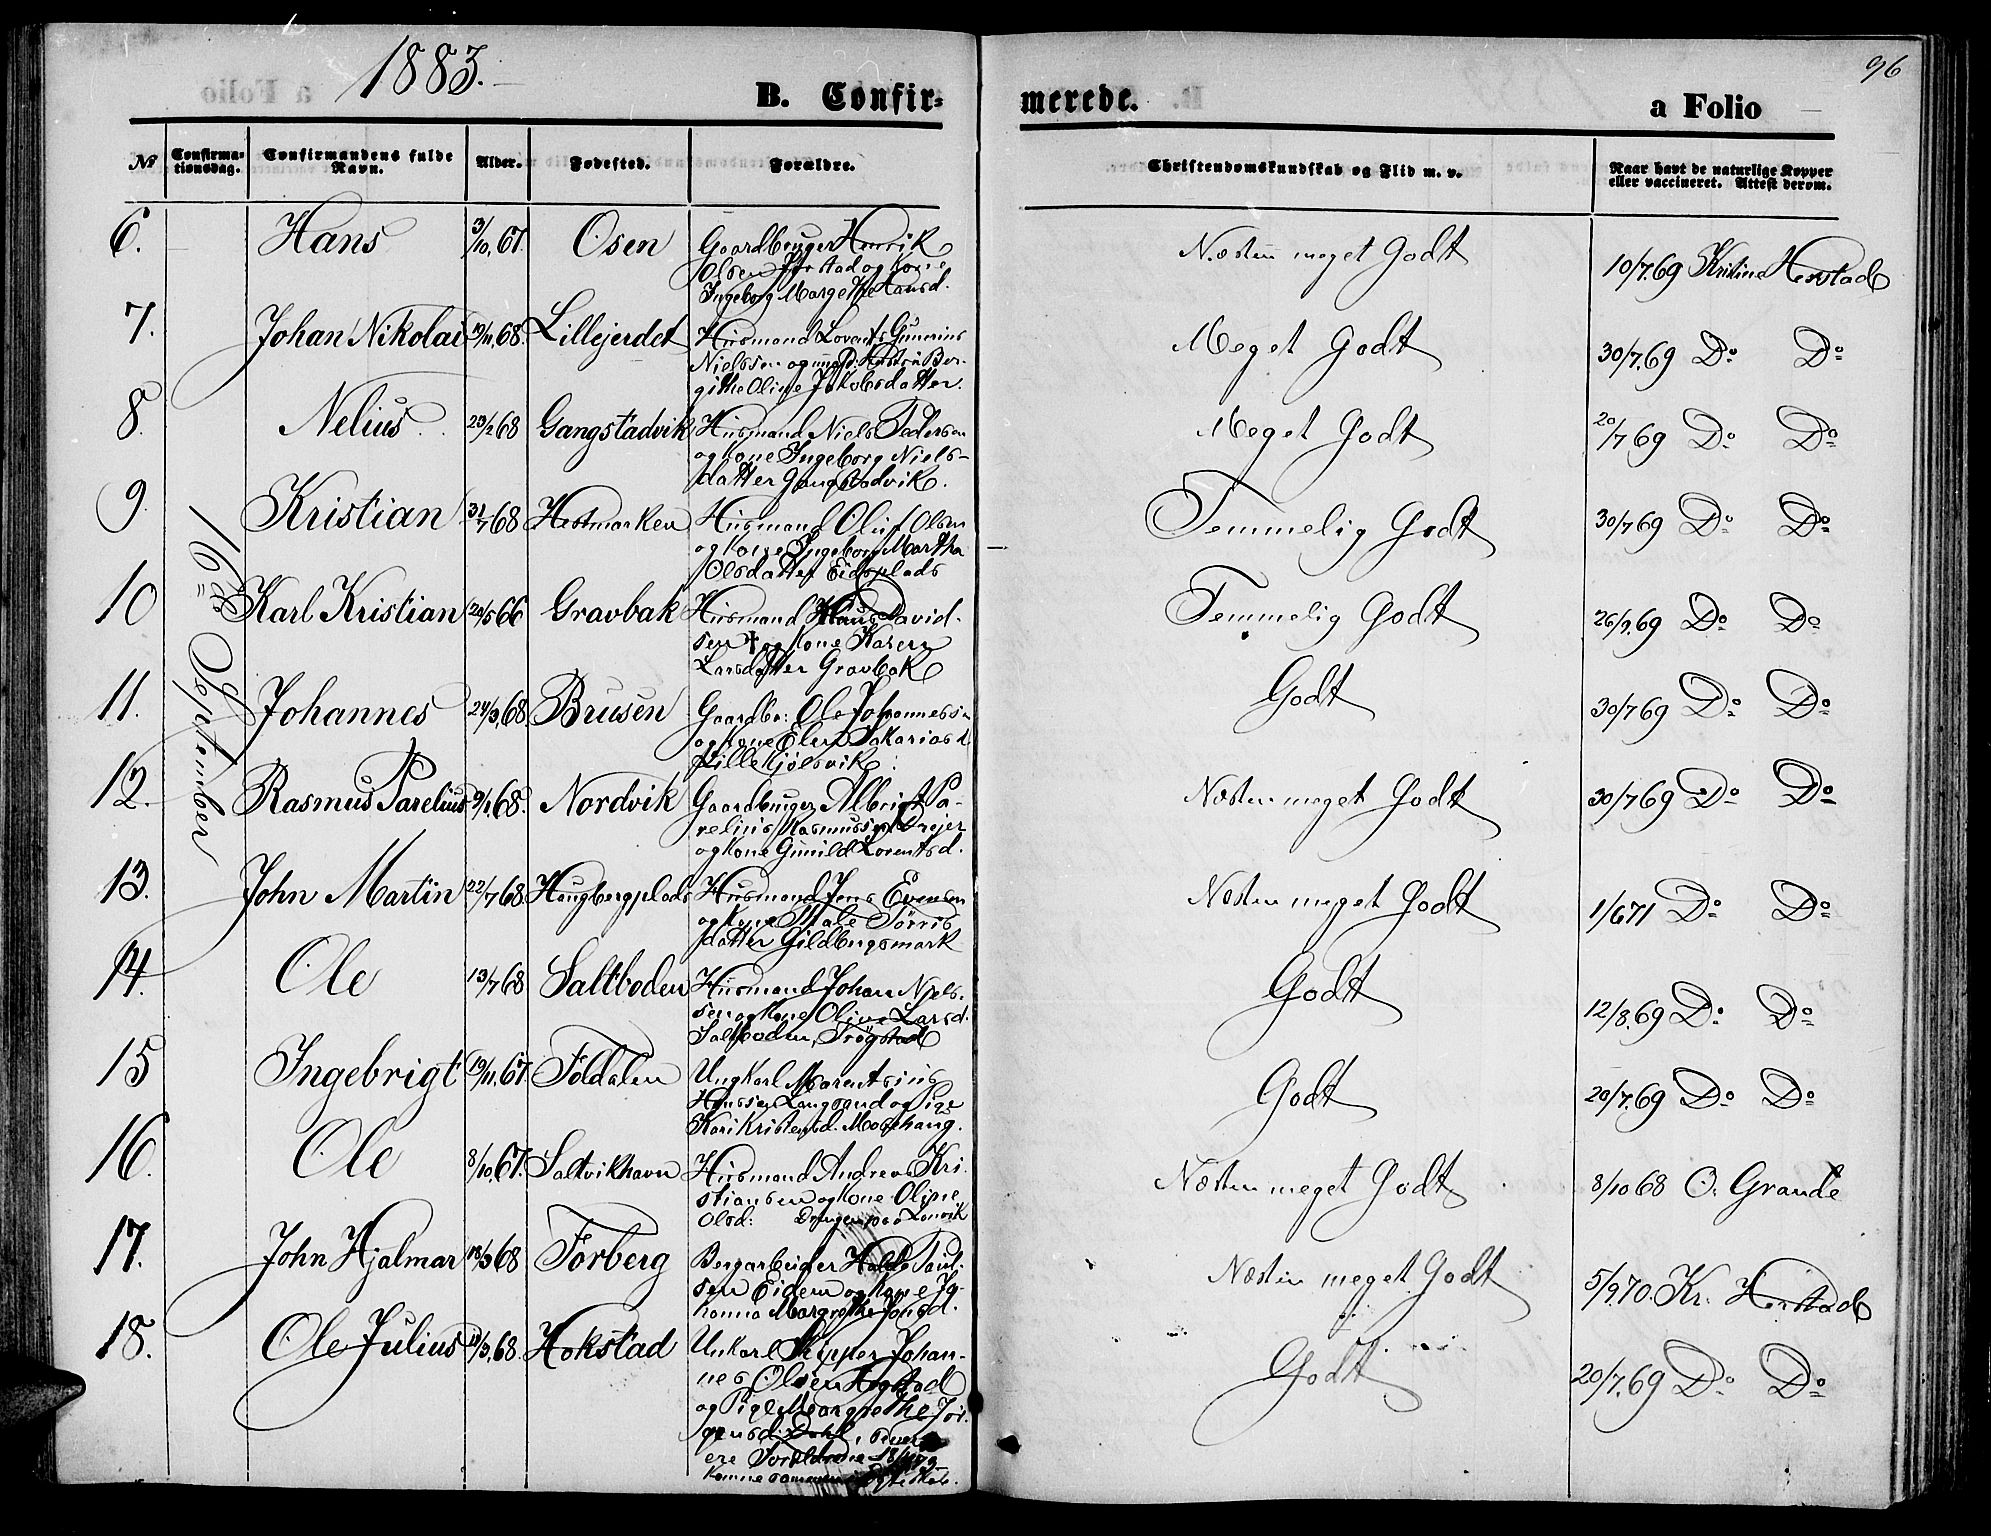 1883.
96
B. Confir=
merede.
a Folio
No
Confirma-
tionsdag.
Confirmandens fulde
Navn.
Alder.
Fødested.
Forældre.
Christendomskundskab og Flid m. v.
Naar havt de naturlige Kopper
eller vaccineret. Attest derom.
16de September
6. Hans 3/10,67. Osen Gaardbruger Henrik
Olsen og Kone
Ingeborg Margethe Hansd.
Næsten meget Godt 10/7.69 Kristine Herstad
7. Johan Nikolai 19/11,68. Lillejerdet Husmand Lorents Gunerius
Nielssen og Ber-
githe Oline Jakobsdatter.
Meget Godt 30/7.69 Do Do
8. Nelius 23/2 68 Gangstadvik Husmand Niels Pedersen
og Kone Ingeborg Niels-
datter Gangstadvik.
Meget Godt 20/7 69 Do Do
9. Kristian 31/7 68 Hestmarken Husmand Oluf Olsen
og Kone Ingeborg Martha
Olsdatter Eidsplads
Temmelig Godt 30/7 69 Do Do
10 Karl Kristian 20/5 66 Gravbak Husmand Hans David-
sen + og Kone Karen
Larsdatter Gravbak
Temmelig Godt 26/9.69 Do Do
11. Johannes 24/3,68 Brusen Gaardbr: Ole Johannessen
og Kone Elen Sakariasd.
Lille Kjølsvik.
Godt 30/7 69 Do Do
12. Rasmus Parelius 9/1,68. Nordvik Gaardbruger Albrigt Pa-
relius Rasmussen Drejer
og Kone Gunild Lorentsd.
Næsten meget Godt 30/7 69 Do Do
13. John Martin 22/7 68. Haugbergplads Husmand Jens Evensen
og Kone Torris
datter Gildbergsmark
Næsten meget Godt 1/6 71 Do Do
14. Ole 13/7 68 Saltboden Husmand Johan Niels-
sen og Kone Oline Larsd.
Saltboden, Trøgstad
Godt 12/8.69 Do Do
15 Ingebrigt 19/11,67. Foldalen Ungkarl Morentsius
Hanssen Langsand og Pige
Kari Kristensd. Mosshaug.
Godt 20/7.69 Do Do
16. Ole 8/10,67. Saltvikhavn Husmand Andreas Kri-
stiansen og Kone Oline
Olsd:
Næsten meget Godt 8/10 68 O. Grande
17. John Hjalmar 18/3 68 Forberg Bergarbeider Paul-
sen Eidem og Kone Jo-
hanna Margrethe Jonsd.
Næsten meget Godt 5/9.70. Kr. Herstad
18. Ole Julius 11/3,68. Hokstad Unkarl Skipper Johan-
nes Olsen Hogstad
og Pige Margrethe Jør-
gensd. Dahl, sener
ere Forældrene 18/
komne sammen i Egteskab.
Godt 20/7.69 Do Do